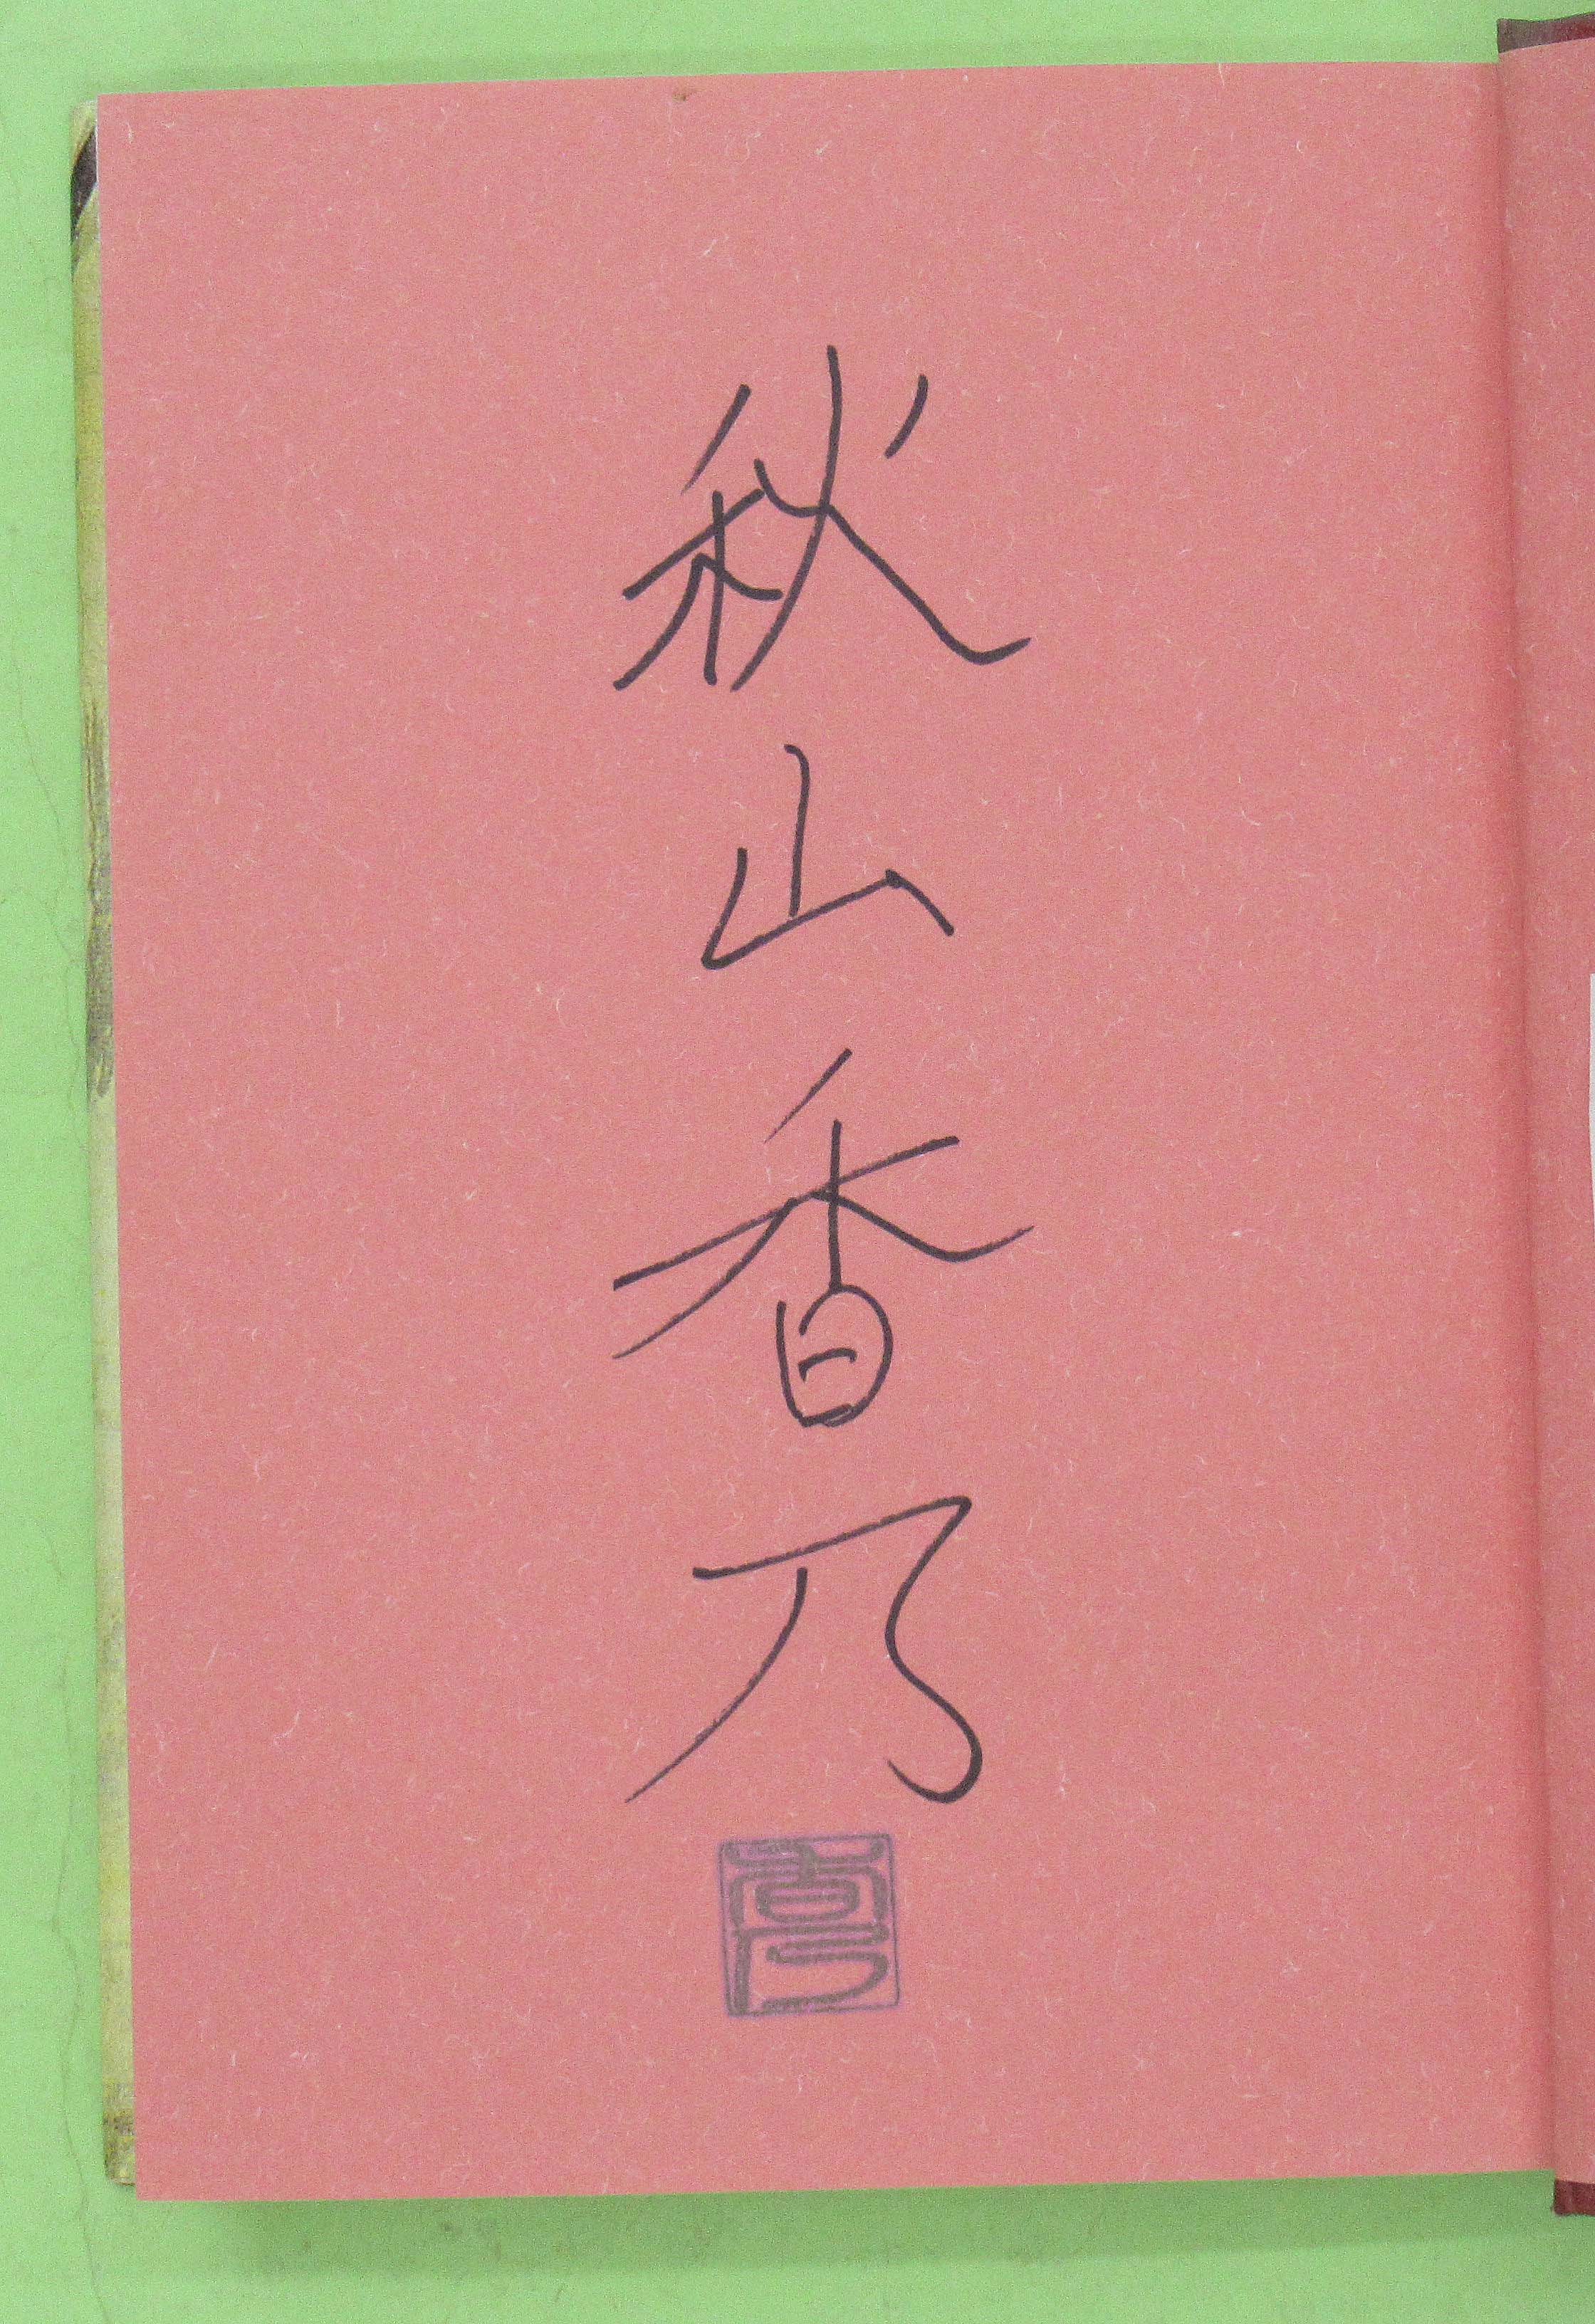 秋山香乃